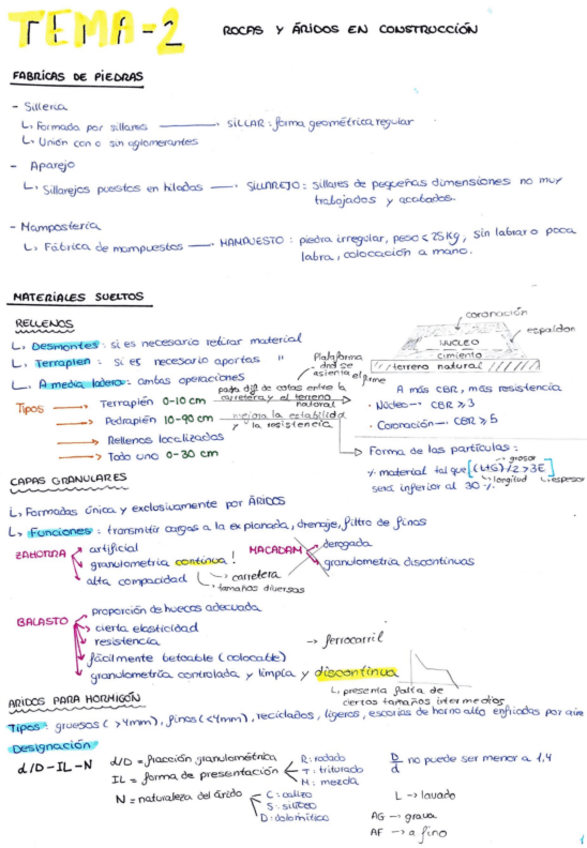 TEMA-2 ROCAS Y ÁRIDOS EN CONSTRUCCIÓN
FABRICAS DE PIEDRAS
- Sillería
↳ Formada por sillares → SILLAR: forma geométrica regular
↳ Unión con o sin aglomerantes
- Aparejo
↳ Sillarejos puestos en hiladas → SILLAREJO: sillares de pequeñas dimensiones no muy
trabajados y acabados.
- Mampostería
↳ Fábrica de mampuestos → MAMPUESTO: piedra irregular, peso < 25Kg, sin labrar o poca
labra, colocación a mano.
MATERIALES SUELTOS
RELLENOS
↳ Desmontes: si es necesario retirar material
↳ Terraplen: si es necesario aportas "
↳ A media ladera: ambas operaciones
coronación
espaldon
NUCLEO
cimiento
terreno natural
Plataforma
dnd se
asienta el firme
Tipos → Terraplén 0-10 cm → para dif de cotas entre la
carretera y el terreno
natural
→ Pedraplén 10-90 cm → mejora la estabilidad
y la resistencia
→ Rellenos localizados
→ Todo uno 0-30 cm
A más CBR, más resistencia
· Núcleo → CBR ≥ 3
· Coronación → CBR ≥ 5
→ Forma de las partículas:
% material tal que [(L+G)/2 > 3E]
grosor
longitud
espesor
será inferior al 30 %.
CAPAS GRANULARES
↳ Formadas única y exclusivamente por ÁRIDOS
↳ Funciones: transmitir cargas a la explanada, drenaje, filtro de finos
ZAHORRA
artificial
granulometría continua!
alta compacidad
→ carretera
→ tamaños diversos
MACADAM
derogada
granulometría discontinuas
BALASTO
proporción de huecos adecuada
cierta elasticidad
resistencia
fácilmente bateable (colocable)
granulometría controlada y limpia y discontinua
→ ferrocarril
↳ presenta falta de
ciertos tamaños intermedios
ARIDOS PARA HORMIGÓN
Tipos: gruesos (>4mm), finos (<4mm), reciclados, ligeros, escorias de horno alto enfriadas por aire
Designación
d/D-IL-N
d/D = fracción granulométrica
IL = forma de presentación
R: rodado
T: triturado
M: mezcla
N = naturaleza del árido
C: calizo
S: silíceo
D: dolomítico
D/d no puede ser menor a 1,4
L → lavado
AG → grava
AF → a fino
1